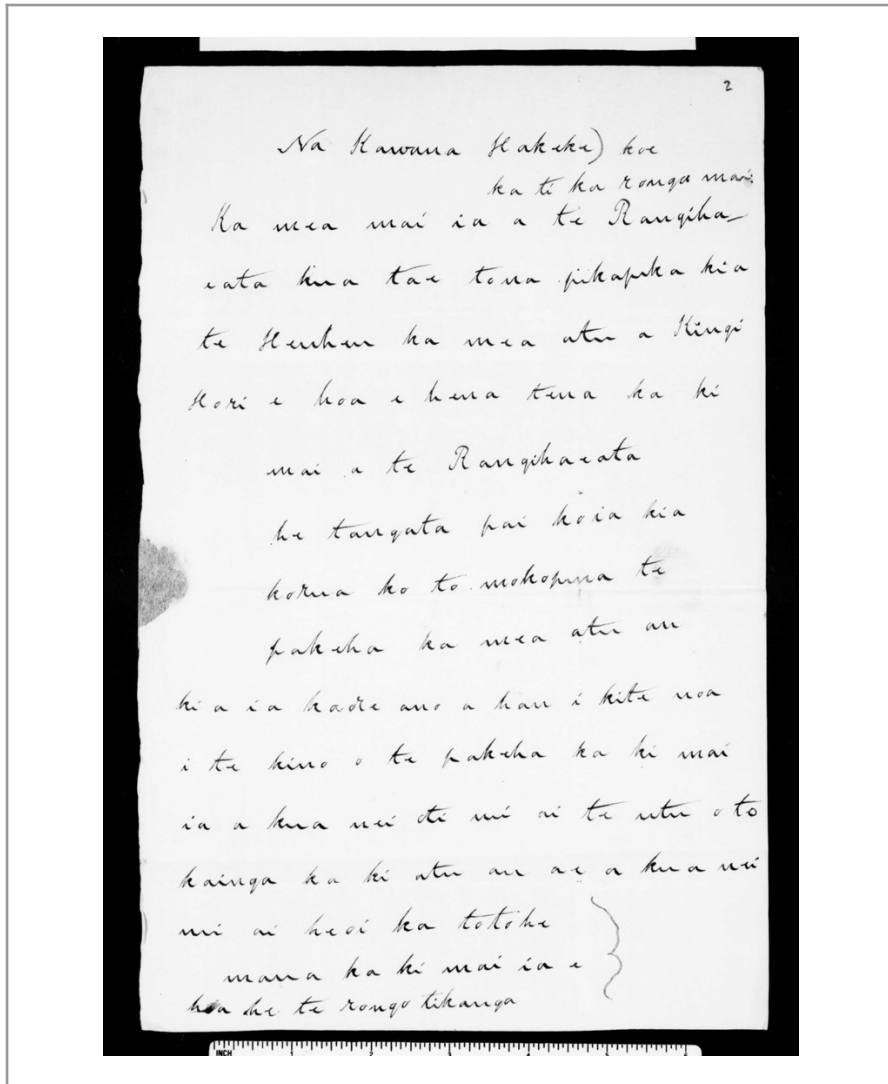 2
Na Kawana Hakeke) koe
ka ti ka rongo mai
Ka mea mai ia a te Rangiha-
eata kua tae tona pikapika kia
te Heuheu ka mea atu a Kingi
Hori e hoa e hena tena ka ki
mai a te Rangihaeata
he tangata pai koia kia
korua ko to mokopuna te
pakeha ka mea atu au
ki a ia kaore ano a hau i kite noa
i te kino o te pakeha ka ki mai
ia a kua nei oti mi ai te utu o to
kainga ka ki atu au ae a kua nei
mi ai heoi ka totohe
mana ka ki mai ia e
hoa he te rongo tikanga
INCH 1 2